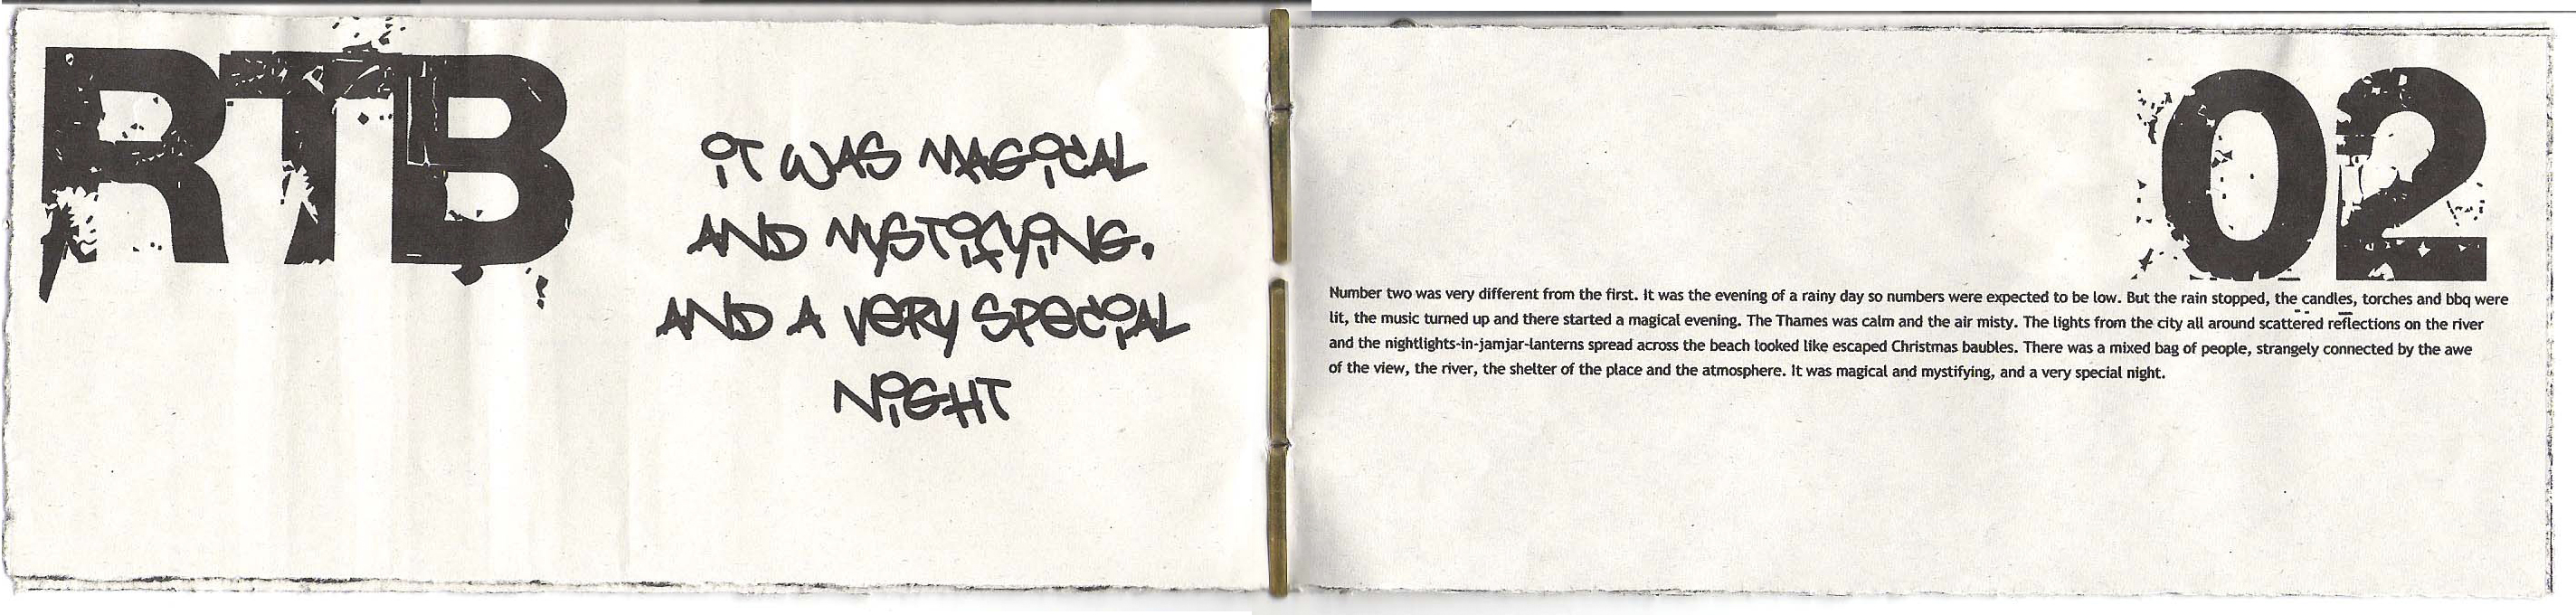 RTB
iT WAS MAGiCAL
AND MYSTiFYiNG.
AND A VERY SPECiAL
NiGHT
02
Number two was very different from the first. It was the evening of a rainy day so numbers were expected to be low. But the rain stopped, the candles, torches and bbq were
lit, the music turned up and there started a magical evening. The Thames was calm and the air misty. The lights from the city all around scattered reflections on the river
and the nightlights-in-jamjar-lanterns spread across the beach looked like escaped Christmas baubles. There was a mixed bag of people, strangely connected by the awe
of the view, the river, the shelter of the place and the atmosphere. It was magical and mystifying, and a very special night.